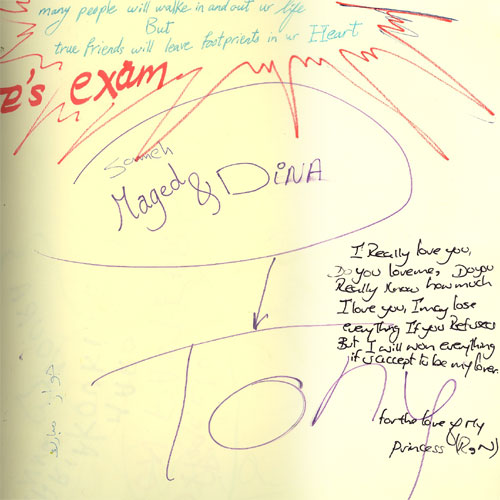 many people will walke in and out ur life
But
true friends will leave footprints in ur Heart
e's exam
Sameh
Maged & DiNA
I Really love you,
Do you loveme, Do you
Really Know how much
I love you, I may lose
everything If you Refuses
But I will won everything
if is accept to be my lover.
Tony
for the love of My
princess (R9N)